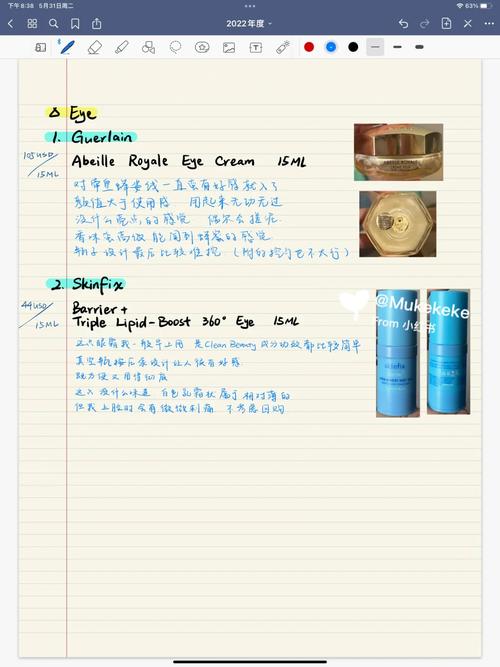 下午8:38 5月31日周二
63%
2022年度
△ Eye
1. Guerlain
105USD/15ML
Abeille Royale Eye Cream 15ML
对帝皇蜂姿线一直蛮有好感就入了
颜值大于使用感 用起来无功无过
没什么亮点的感觉 偶尔会搓泥
香味蛮高级 能闻到蜂蜜的感觉
瓶子设计最后比较难挖（附的挖勺也不太行）
2. Skinfix
44USD/15ML
Barrier+
Triple Lipid-Boost 360° Eye 15ML
这只眼霜我一般早上用 是Clean Beauty成分功效都比较简单
真空瓶按压泵设计让人很有好感
既方便又用得彻底
没什么味道 白色乳霜状属于相对薄的
但我上脸时会有微微刺痛 不考虑回购
@Mukekeke
From 小红书
ABEILLE ROYALE
skinfix